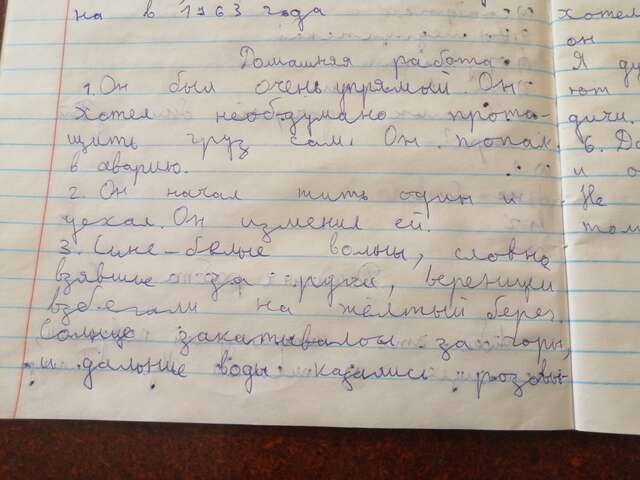 на в 1963 года
Домашняя работа
1. Он был очень упрямый. Он
хотел необдумано прота-
щить груз сам. Он попал
в аварию.
2. Он начал жить один и
уехал. Он изменил ей.
3. Сине-белые волны, словно
взявшие за руки, вереници
взбегали на жёлтый берег.
Солнце закатывалось за горы,
и дальние воды казались розовы-
хотел
он
Я ду
ют
дичи.
6. До
и о
Не
том